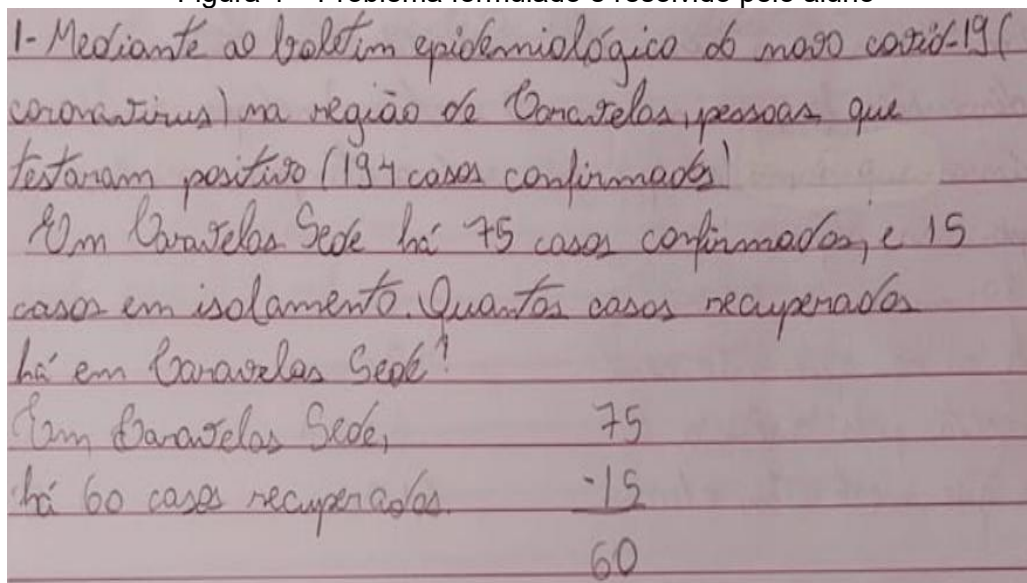 1- Mediante ao boletim epidemiológico do novo covid-19 (
coronavirus) na região de Caravelas, pessoas que
testaram positivo (194 casos confirmados)
Em Caravelas Sede há 75 casos confirmados, e 15
casos em isolamento. Quantos casos recuperados
há em Caravelas Sede?
Em Caravelas Sede, 75
há 60 casos recuperados. -15
60